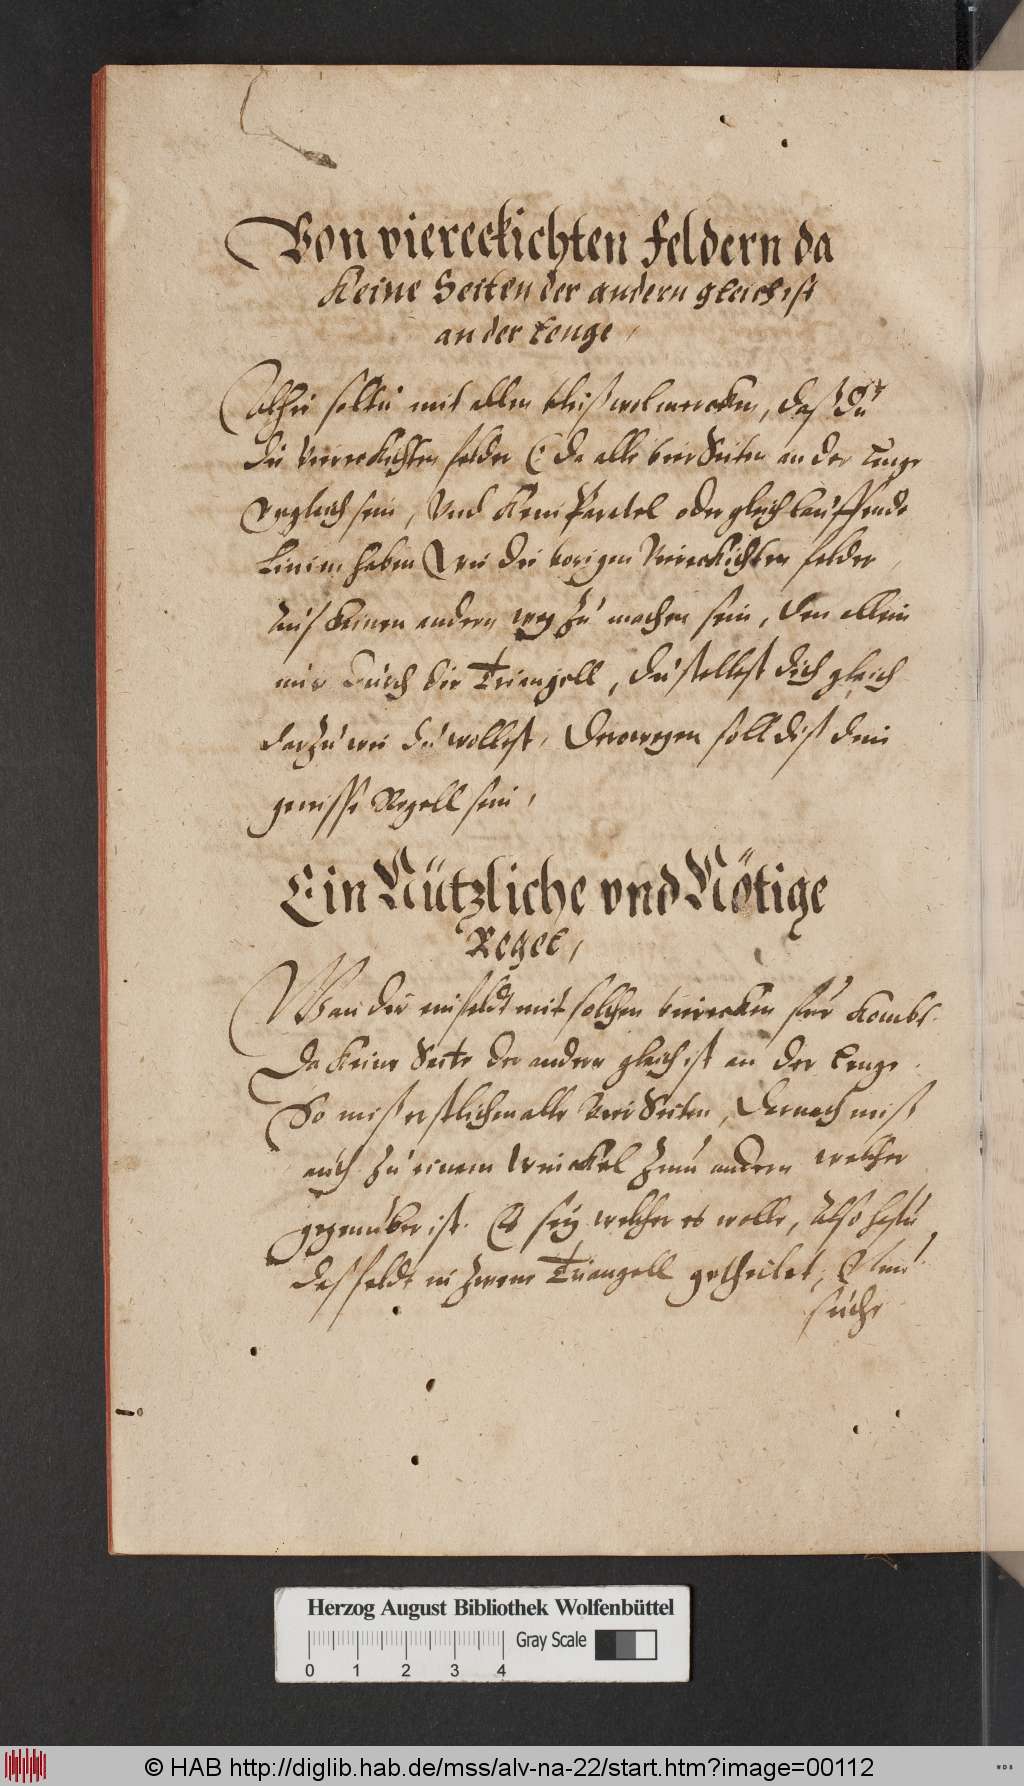 Von viereckichten feldern da
Keine Seiten der andern gleich ist
an der lenge,
Alhie soltu mit allem vleiß wol mercken, daß du
die Viereckichten felder da alle vier Seiten an der lenge
vngleich sein, Vnd Kein Paralel oder gleichlauffende
Linien haben wie die vorigen Viereckichten felder,
auf keinen andern weg zu machen sein, den allein
nur durch die Triangell, du stellest dich gleich
darzu wie du wollest, Derowegen soll diß dein
gewisse Regell sein,
Ein Nützliche vnd Nötige
Regel,
Wan dir ein feldt mit solchen vierecken für kombt
Da Keine Seite der andern gleich ist an der lenge
So miß erstlichen alle Vier Seiten, Darnach miß
auch zu einem Winckel zum andern welcher
gegenüber ist. Es sey welcher es wolle, Also hastu
das feldt in zwene Triangell getheilet,
suche
Herzog August Bibliothek Wolfenbüttel
Gray Scale
0 1 2 3 4
© HAB http://diglib.hab.de/mss/alv-na-22/start.htm?image=00112